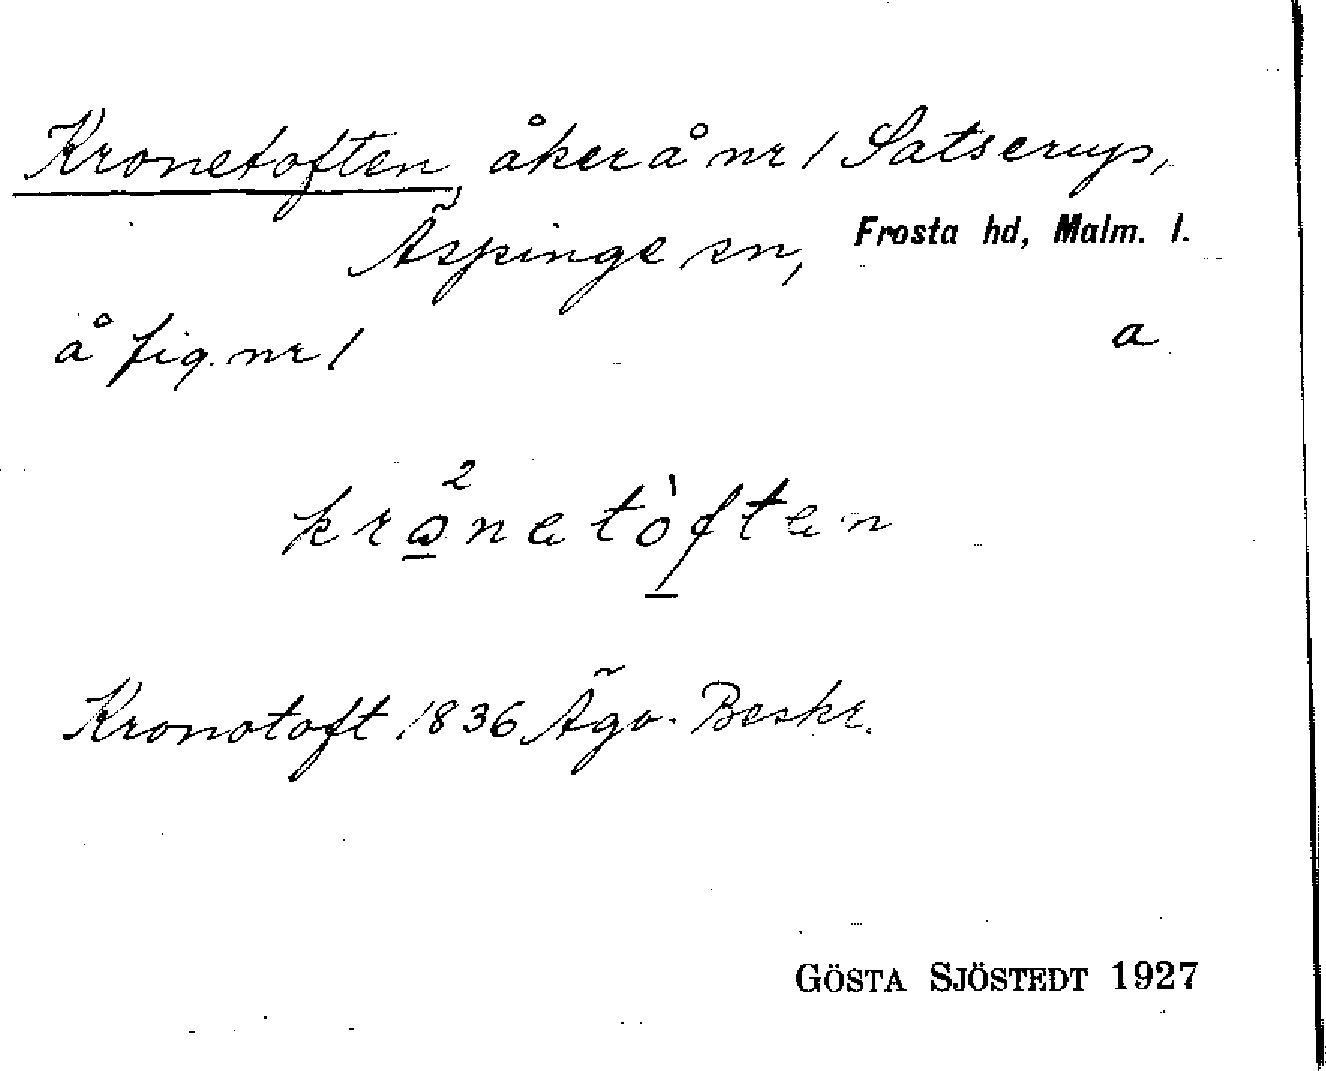 Kronetoften, åker å nr 1 Satserup,
Äspinge sn, Frosta hd, Malm. l.
å fig. nr 1 a
kro²netòften
Kronotoft 1836 Ägo-Beskr.
GÖSTA SJÖSTEDT 1927